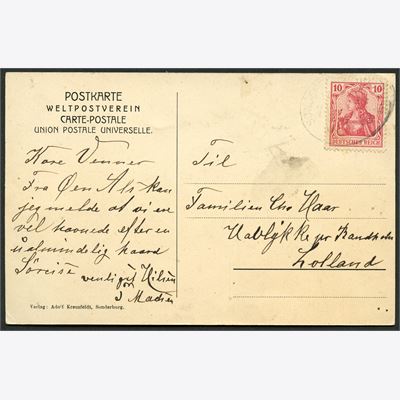 POSTKARTE
WELTPOSTVEREIN
CARTE-POSTALE
UNION POSTALE UNIVERSELLE.
Kære Venner
Fra Øen Als kan
jeg melde at vi er
vel havnede efter en
ualmindelig haard
Søreise
venligst Hilsen
J Madsen
Verlag: Adolf Kreuzfeldt, Sonderburg.
10 10
DEUTSCHES REICH
Til
Familien Chr Haar
pr Bandholm
Lolland